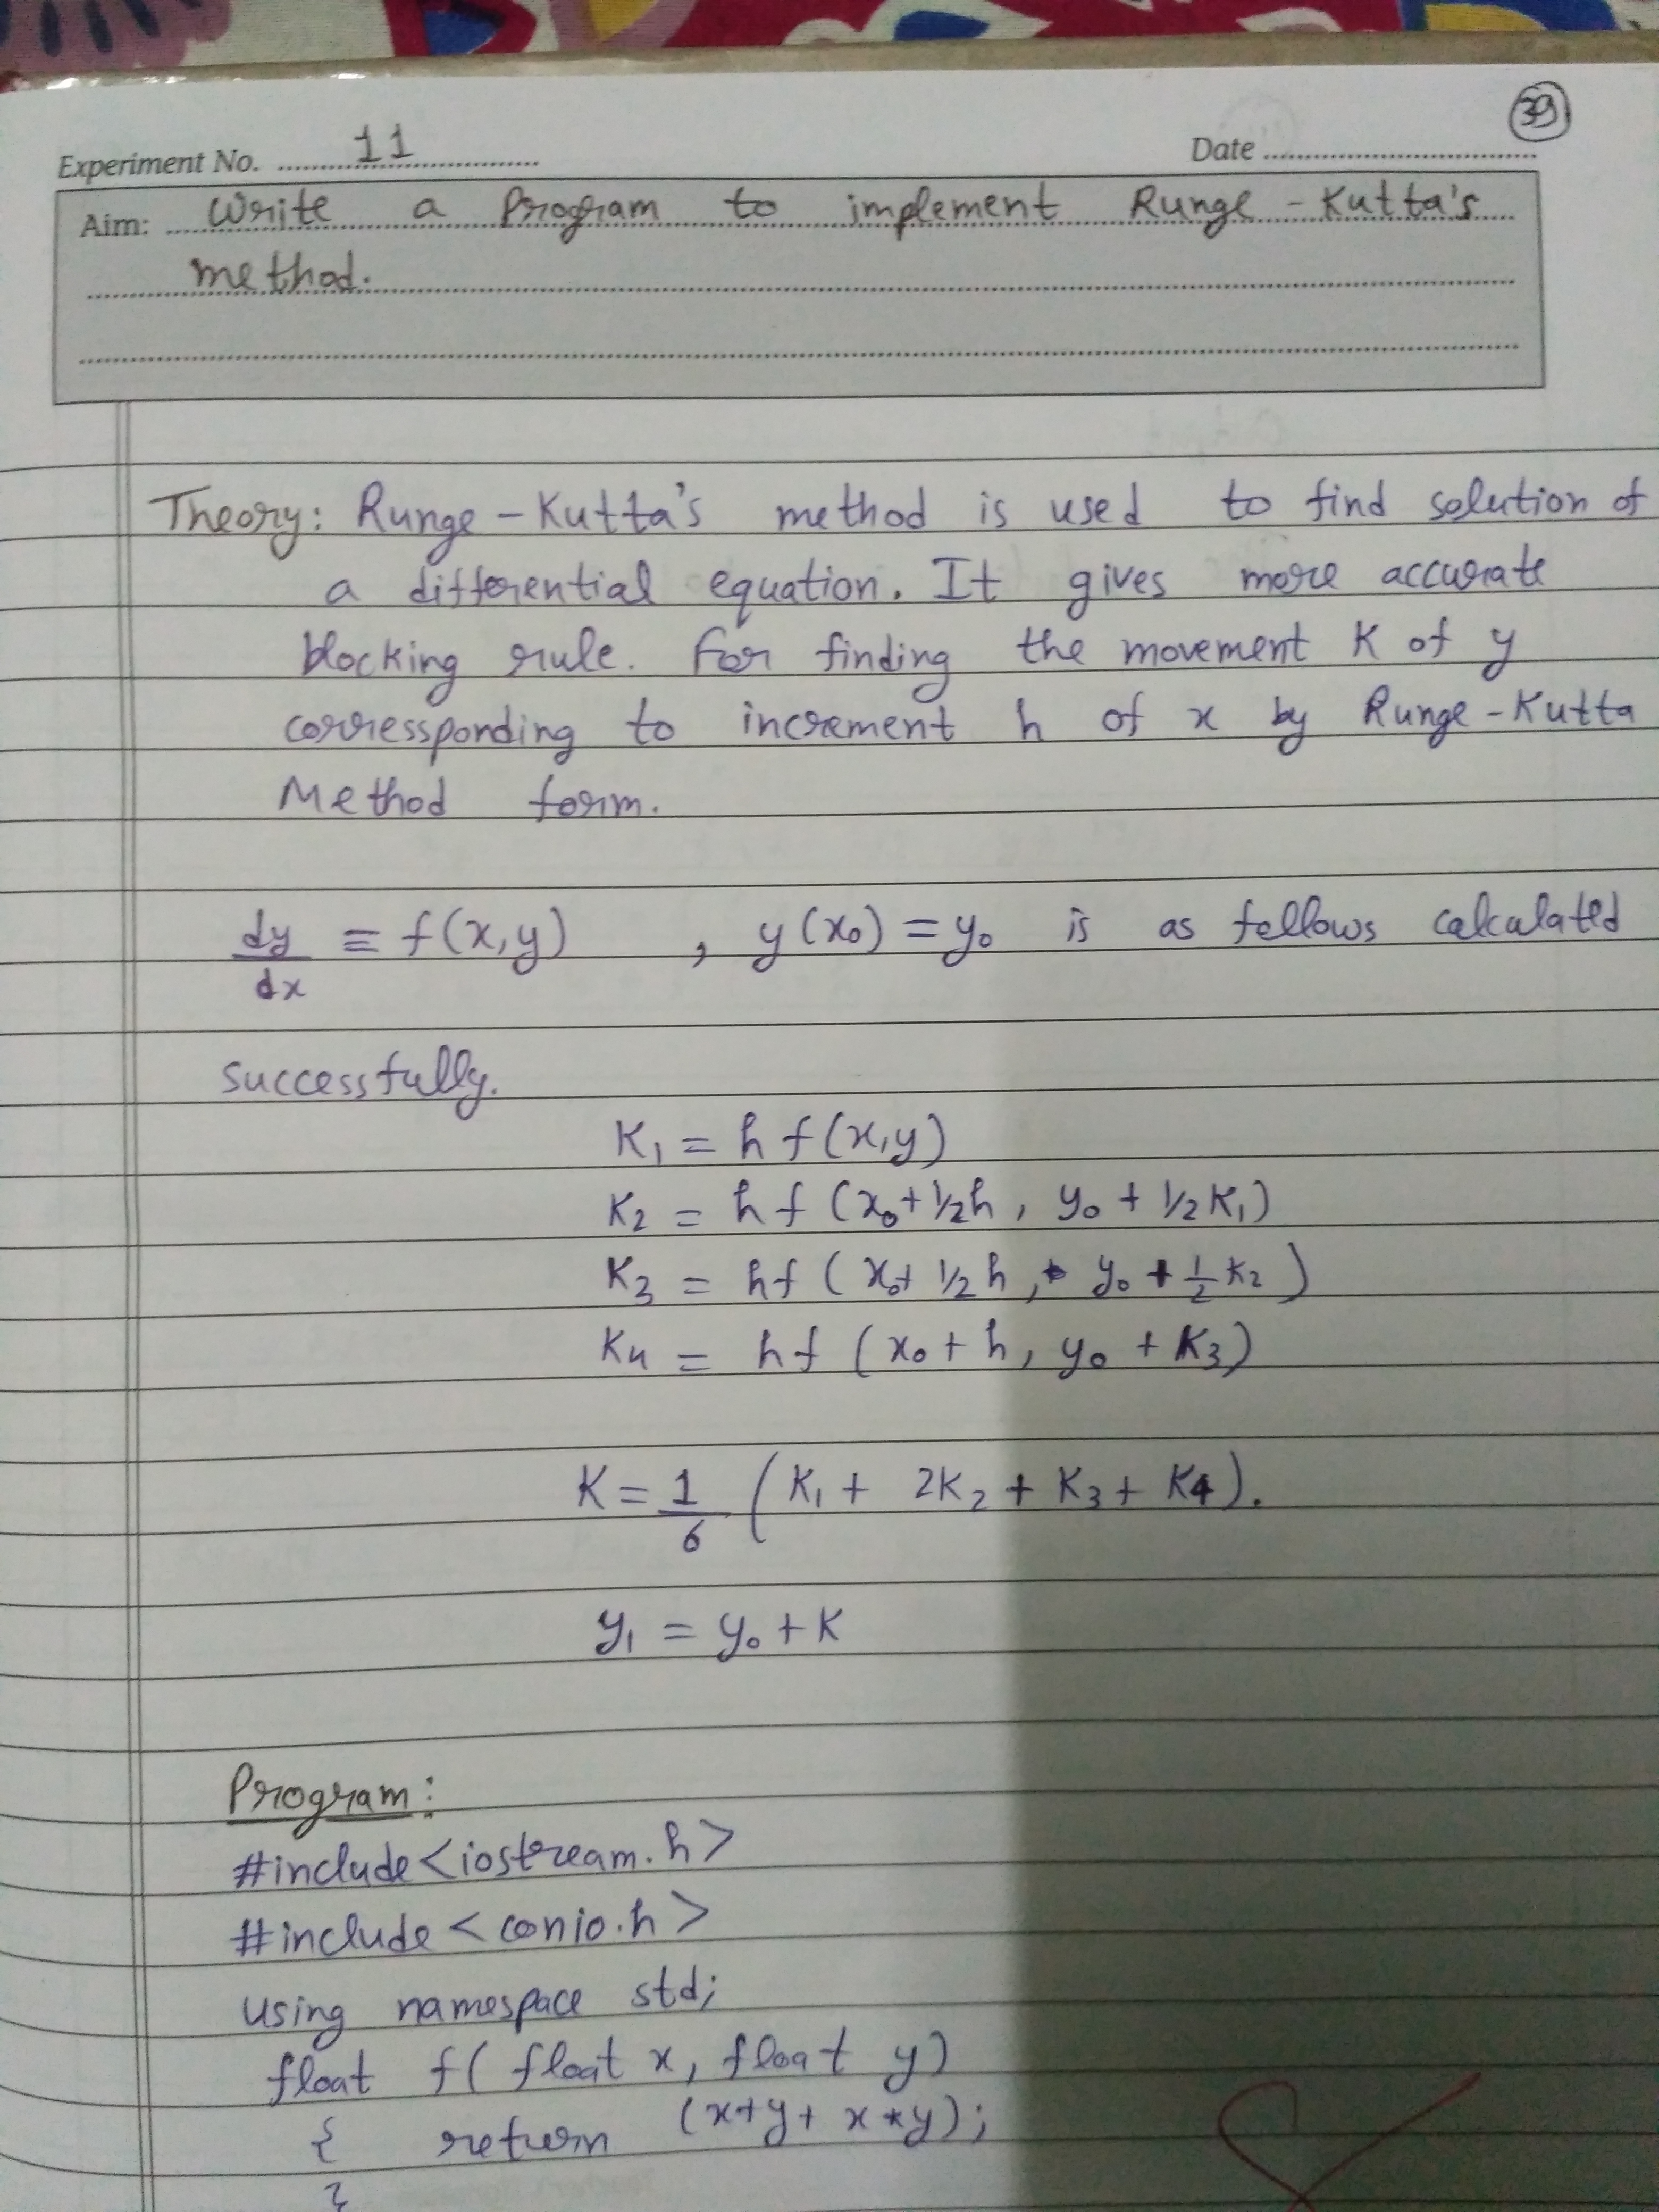 39
Experiment No. 11 Date
Aim: Write a Program to implement Runge - Kutta's
method.
Theory: Runge - Kutta's method is used to find solution of
a differential equation. It gives more accurate
blocking rule. For finding the movement K of y
corressponding to increment h of x by Runge - Kutta
Method form.
dy/dx = f(x,y) , y(x₀) = y₀ is as follows calculated
successfully.
K₁ = h f(x,y)
K₂ = h f (x₀ + 1/2h , y₀ + 1/2 K₁)
K₃ = hf ( x₀+ 1/2 h , y₀ + 1/2 K₂ )
K₄ = hf ( x₀ + h, y₀ + K₃)
K = 1/6 ( K₁ + 2K₂ + K₃ + K4 ).
y₁ = y₀ + K
Program:
#include <iostream.h>
#include < conio.h >
using namespace std;
float f( float x, float y)
{ return (x+y+ x *y);
}